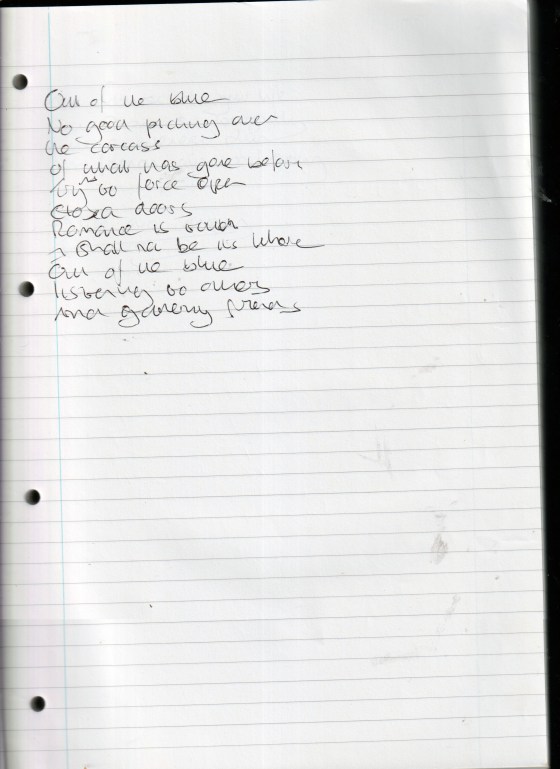 Out of the blue
No good picking over
the carcass
of what has gone before
Try to force open
closed doors
Romance is
I shall not be its whore
Out of the blue
listening to others
and gathering